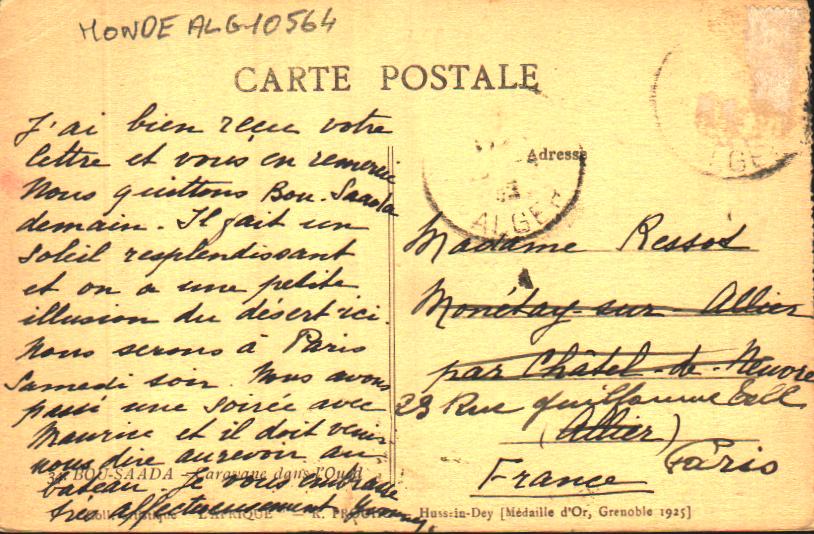 MONDE ALG10564
CARTE POSTALE
J'ai bien reçu votre
lettre et vous en remercie
Nous quittons Bou-Saada
demain. Il fait un
soleil resplendissant
et on a une petite
illusion du désert ici.
Nous serons à Paris
Samedi soir. Nous avons
passé une soirée avec
Maurice et il doit venir
nous dire aurevoir au
bateau Je vous embrasse
très affectueusement
Adresse
ALGER
ALGER
Madame Ressot
Monétay-sur-Allier
par Châtel-de-Neuvre
23 Rue Guillaume Tell
(Allier)
Paris
France
BOU-SAADA - Caravane dans l'Oued
"L'AFRIQUE" - Huss-in-Dey [Médaille d'Or, Grenoble 1925]